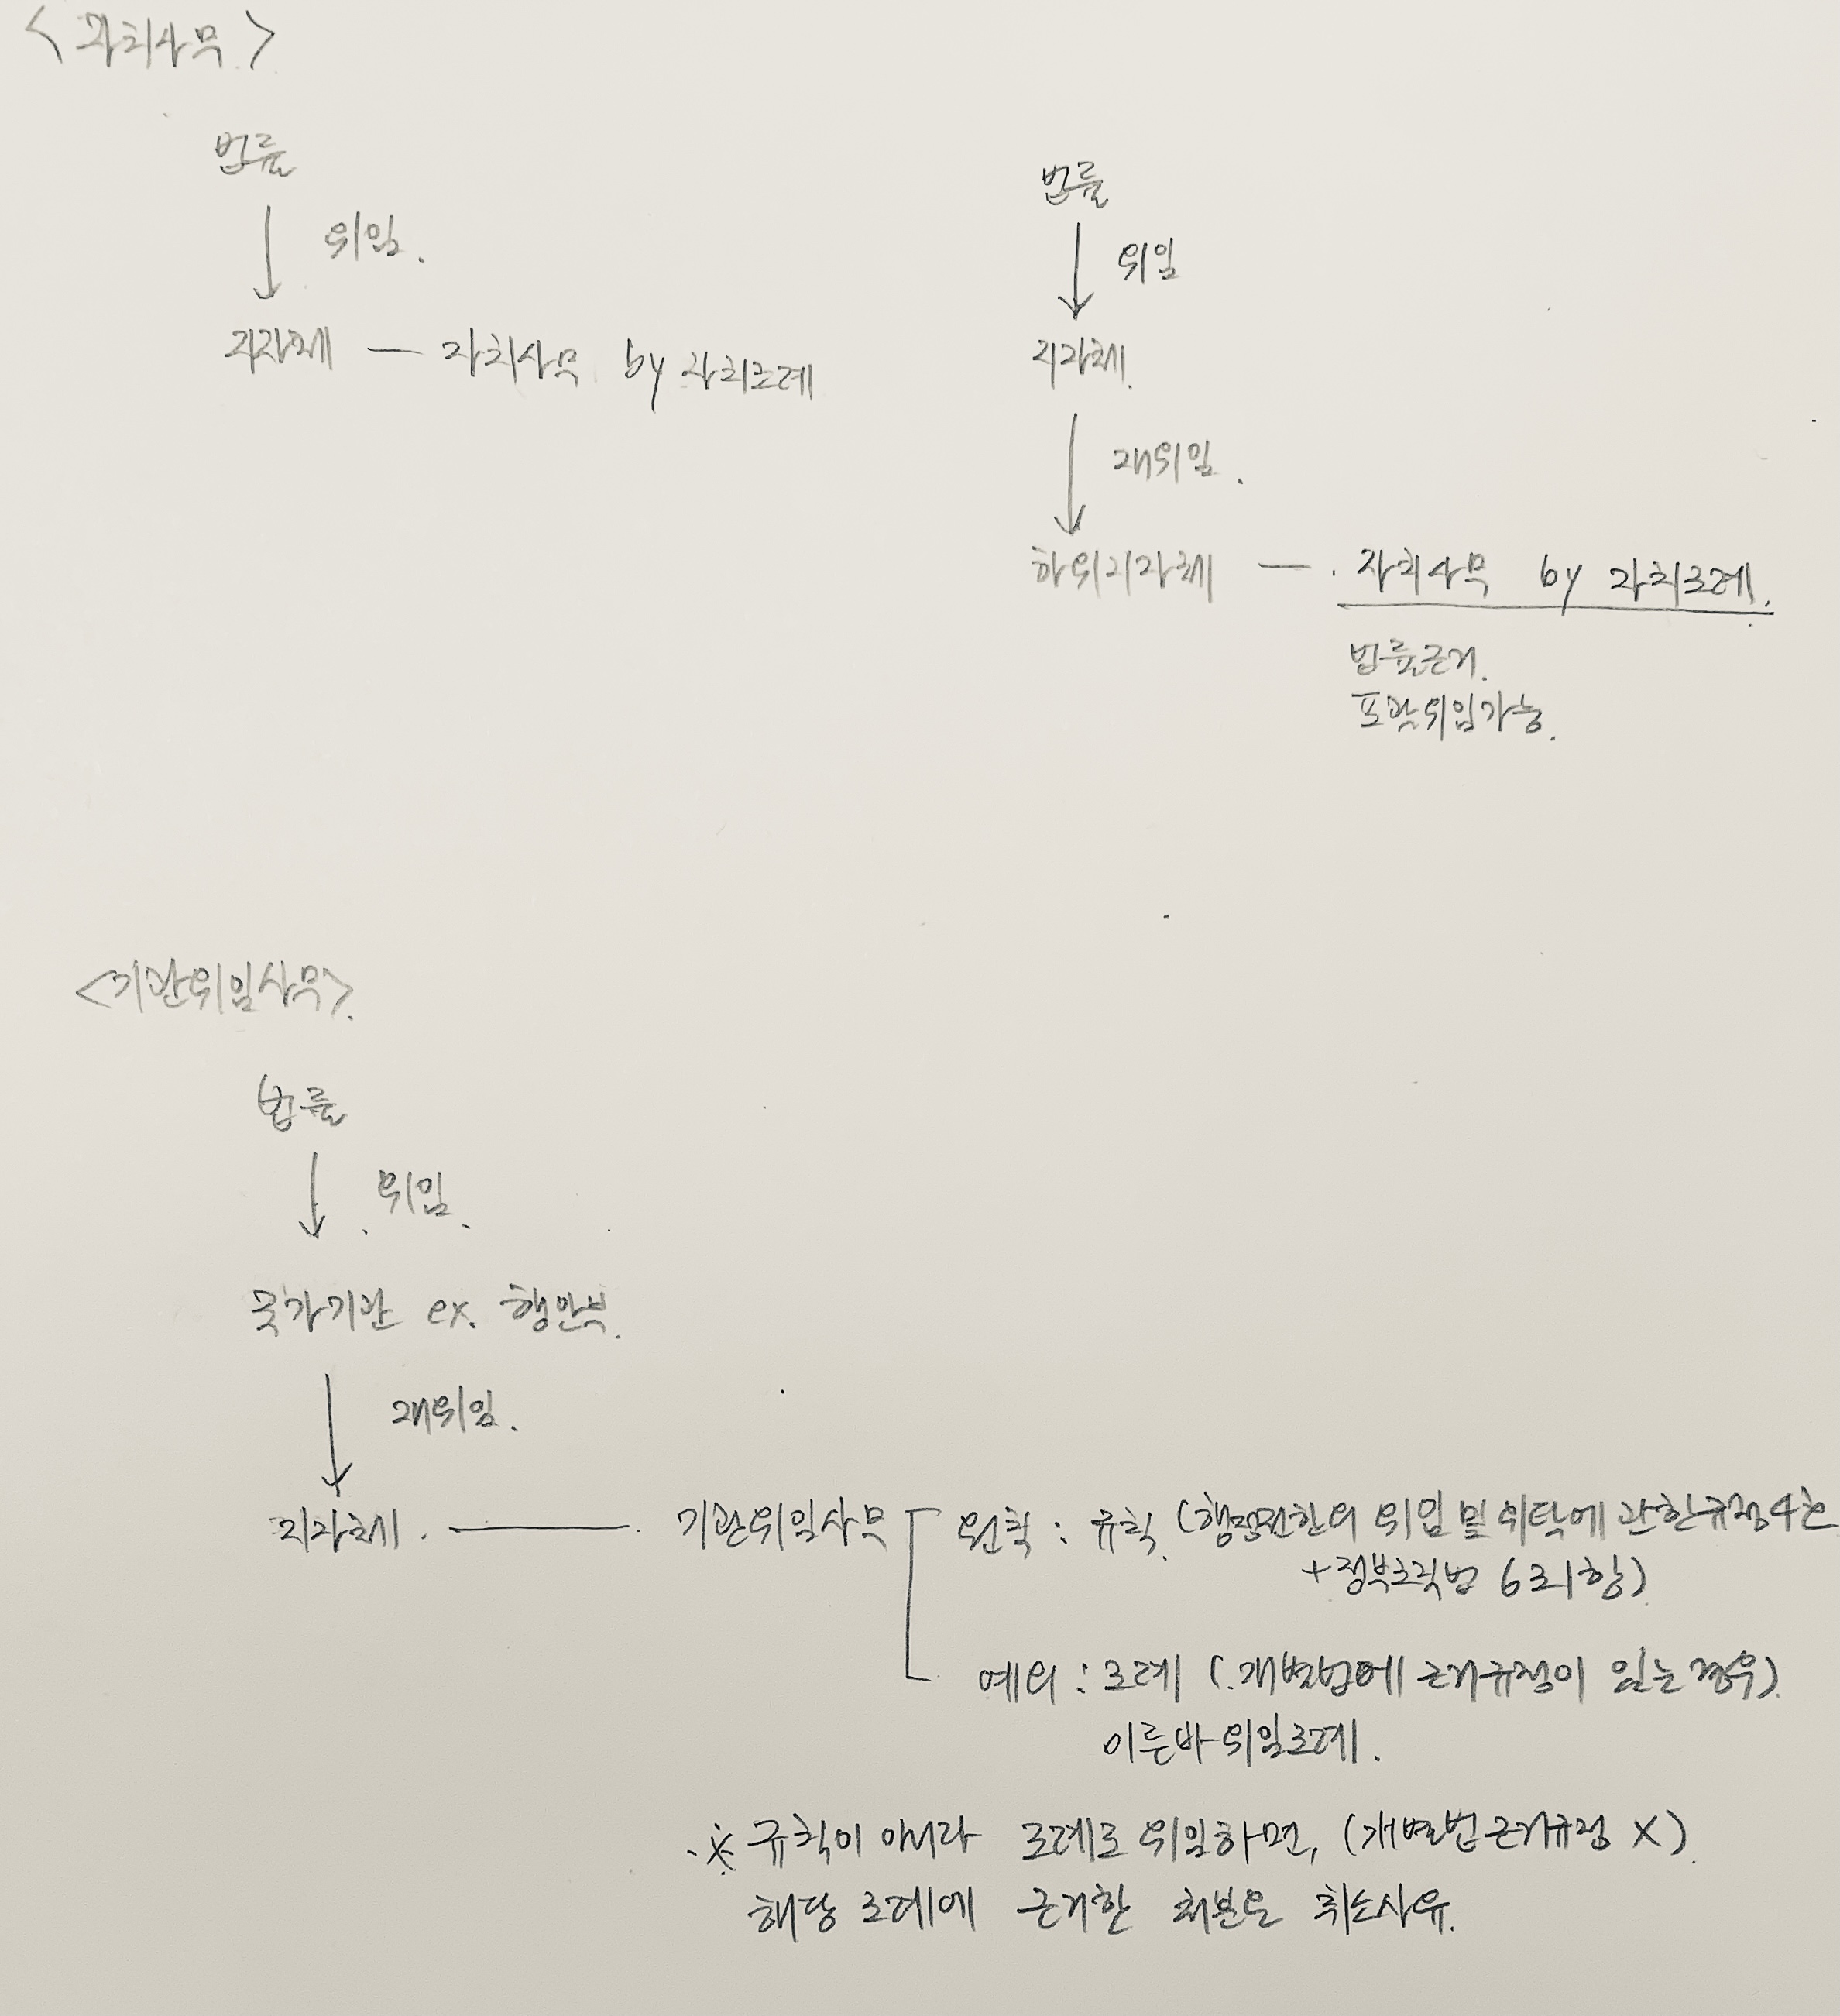 <자치사무>
법률
위임.
지자체 — 자치사무 by 자치조례
법률
위임
지자체.
재위임.
하위지자체 — 자치사무 by 자치조례.
법률근거.
포괄위임가능.
<기관위임사무>.
법률
위임.
국가기관 ex. 행안부.
재위임.
지자체. — 기관위임사무
원칙 : 규칙. (행정권한의 위임 및 위탁에 관한 규정 4조
+ 정부조직법 6조1항)
예외 : 조례 (개별법에 근거규정이 있는 경우).
이른바 위임조례.
※ 규칙이 아니라 조례로 위임하면, (개별법 근거규정 X).
해당 조례에 근거한 처분은 취소사유.